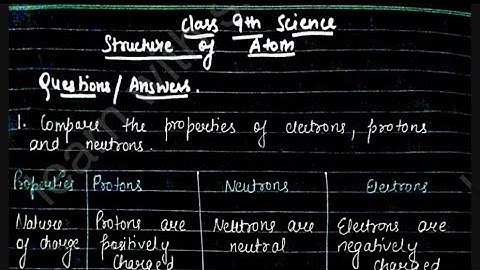 Class 9th Science
Structure of Atom
Questions/Answers.
1. Compare the properties of electrons, protons
and neutrons.
Properties Protons Neutrons Electrons
Nature Protons are Neutrons are Electrons are
of charge positively neutral negatively
charged charged